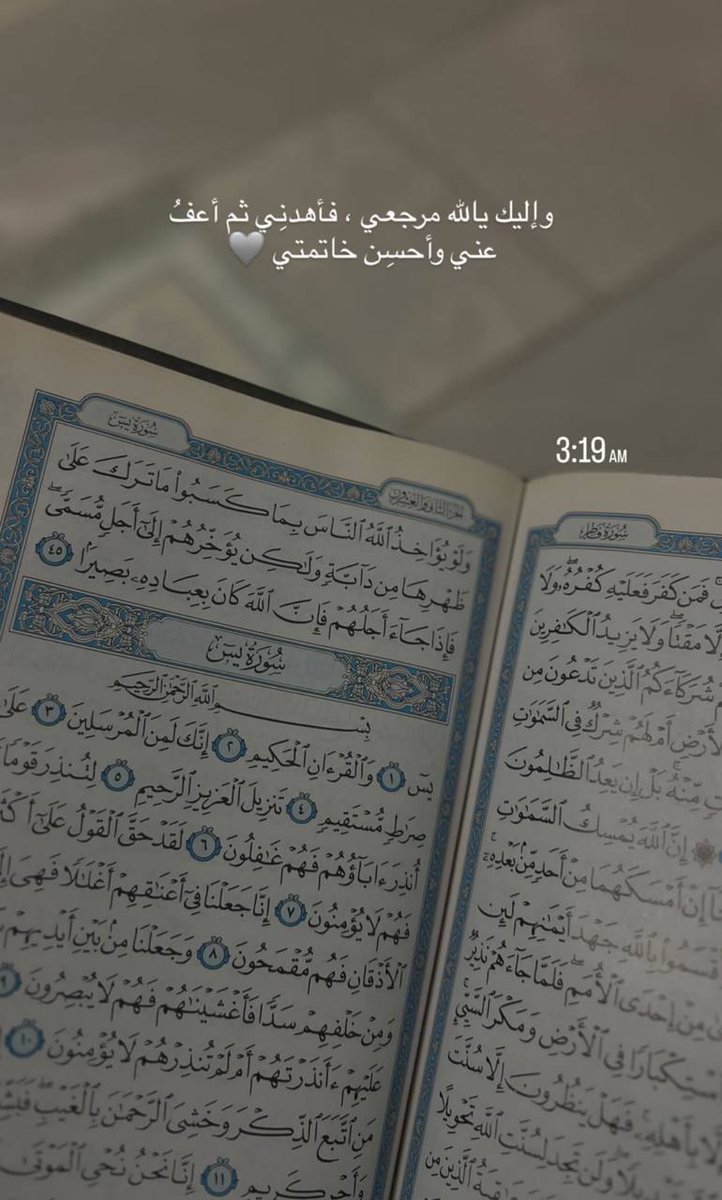 وإليك يالله مرجعي ، فأهدنِي ثم أعفُ
عني وأحسِن خاتمتي 🤍
3:19 AM
سُورَةُ فَاطِرٍ
فَمَن كَفَرَ فَعَلَيْهِ كُفْرُهُۥ وَلَا
إِلَّا مَقْتًا ۖ وَلَا يَزِيدُ ٱلْكَٰفِرِينَ
شُرَكَآءَكُمُ ٱلَّذِينَ تَدْعُونَ مِن
أَمْ لَهُمْ شِرْكٌ فِى ٱلسَّمَٰوَٰتِ
مِّنْهُ ۚ بَلْ إِن يَعِدُ ٱلظَّٰلِمُونَ
إِنَّ ٱللَّهَ يُمْسِكُ ٱلسَّمَٰوَٰتِ
إِنْ أَمْسَكَهُمَا مِنْ أَحَدٍ مِّنۢ بَعْدِهِۦٓ ۚ
بِٱللَّهِ جَهْدَ أَيْمَٰنِهِمْ لَئِن
مِنْ إِحْدَى ٱلْأُمَمِ ۖ فَلَمَّا جَآءَهُمْ نَذِيرٌ
ٱسْتِكْبَارًا فِى ٱلْأَرْضِ وَمَكْرَ ٱلسَّيِّئِ ۚ
بِأَهْلِهِۦ ۚ فَهَلْ يَنظُرُونَ إِلَّا سُنَّتَ
وَلَن تَجِدَ لِسُنَّتِ ٱللَّهِ تَحْوِيلًا
ٱلَّذِينَ مِن
الجزء الثاني والعشرون
سُورَةُ يسٓ
وَلَوْ يُؤَاخِذُ ٱللَّهُ ٱلنَّاسَ بِمَا كَسَبُوا۟ مَا تَرَكَ عَلَىٰ
ظَهْرِهَا مِن دَآبَّةٍ وَلَٰكِن يُؤَخِّرُهُمْ إِلَىٰٓ أَجَلٍ مُّسَمًّى ۖ
فَإِذَا جَآءَ أَجَلُهُمْ فَإِنَّ ٱللَّهَ كَانَ بِعِبَادِهِۦ بَصِيرًۢا ٤٥
سُورَةُ يسٓ
بِسْمِ ٱللَّهِ ٱلرَّحْمَٰنِ ٱلرَّحِيمِ
يسٓ ١ وَٱلْقُرْءَانِ ٱلْحَكِيمِ ٢ إِنَّكَ لَمِنَ ٱلْمُرْسَلِينَ ٣ عَلَىٰ
صِرَٰطٍ مُّسْتَقِيمٍ ٤ تَنزِيلَ ٱلْعَزِيزِ ٱلرَّحِيمِ ٥ لِتُنذِرَ قَوْمًا
أُنذِرَ ءَابَآؤُهُمْ فَهُمْ غَٰفِلُونَ ٦ لَقَدْ حَقَّ ٱلْقَوْلُ عَلَىٰٓ
فَهُمْ لَا يُؤْمِنُونَ ٧ إِنَّا جَعَلْنَا فِىٓ أَعْنَٰقِهِمْ أَغْلَٰلًا فَهِىَ
ٱلْأَذْقَانِ فَهُم مُّقْمَحُونَ ٨ وَجَعَلْنَا مِنۢ بَيْنِ أَيْدِيهِمْ
وَمِنْ خَلْفِهِمْ سَدًّا فَأَغْشَيْنَٰهُمْ فَهُمْ لَا يُبْصِرُونَ ٩
عَلَيْهِمْ ءَأَنذَرْتَهُمْ أَمْ لَمْ تُنذِرْهُمْ لَا يُؤْمِنُونَ ١٠
مَنِ ٱتَّبَعَ ٱلذِّكْرَ وَخَشِىَ ٱلرَّحْمَٰنَ بِٱلْغَيْبِ ۖ
وَأَجْرٍ كَرِيمٍ ١١ إِنَّا نَحْنُ نُحْىِ ٱلْمَوْتَىٰ